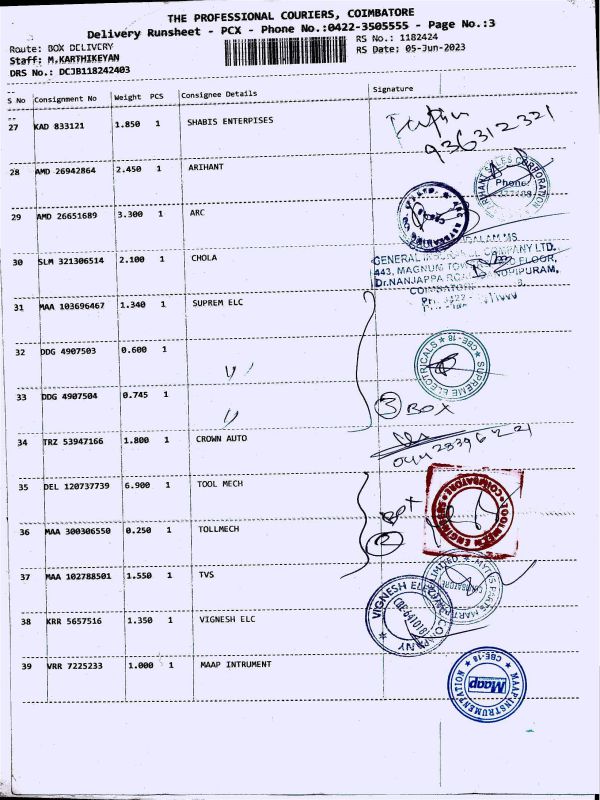 THE PROFESSIONAL COURIERS, COIMBATORE
Delivery Runsheet - PCX - Phone No.:0422-3505555 - Page No.:3
Route: BOX DELIVERY
RS No.: 1182424
Staff: M.KARTHIKEYAN
RS Date: 05-Jun-2023
DRS No.: DCJB118242403
S No Consignment No Weight PCS Consignee Details Signature
27 KAD 833121 1.850 1 SHABIS ENTERPISES
9363112321
28 AMD 26942864 2.450 1 ARIHANT
ARIHANT SALES CORPORATION
Phone:
29 AMD 26651689 3.300 1 ARC
30 SLM 321306514 2.100 1 CHOLA
GENERAL INSURANCE COMPANY LTD.
443, MAGNUM FLOOR,
Dr.NANJAPPA
COIMBATORE
31 MAA 103696467 1.340 1 SUPREM ELC
32 DDG 4907503 0.600 1
"
SUPREME ELECTRICALS CBE-18
33 DDG 4907504 0.745 1
"
3 BOX
34 TRZ 53947166 1.800 1 CROWN AUTO
35 DEL 120737739 6.900 1 TOOL MECH
TOOLMECH COIMBATORE
36 MAA 300306550 0.250 1 TOLLMECH
2 BOX
37 MAA 102788501 1.550 1 TVS
38 KRR 5657516 1.350 1 VIGNESH ELC
VIGNESH COMPANY
CBE-641018
39 VRR 7225233 1.000 1 MAAP INTRUMENT
MAAP INSTRUMENTATION CBE-18
Maap